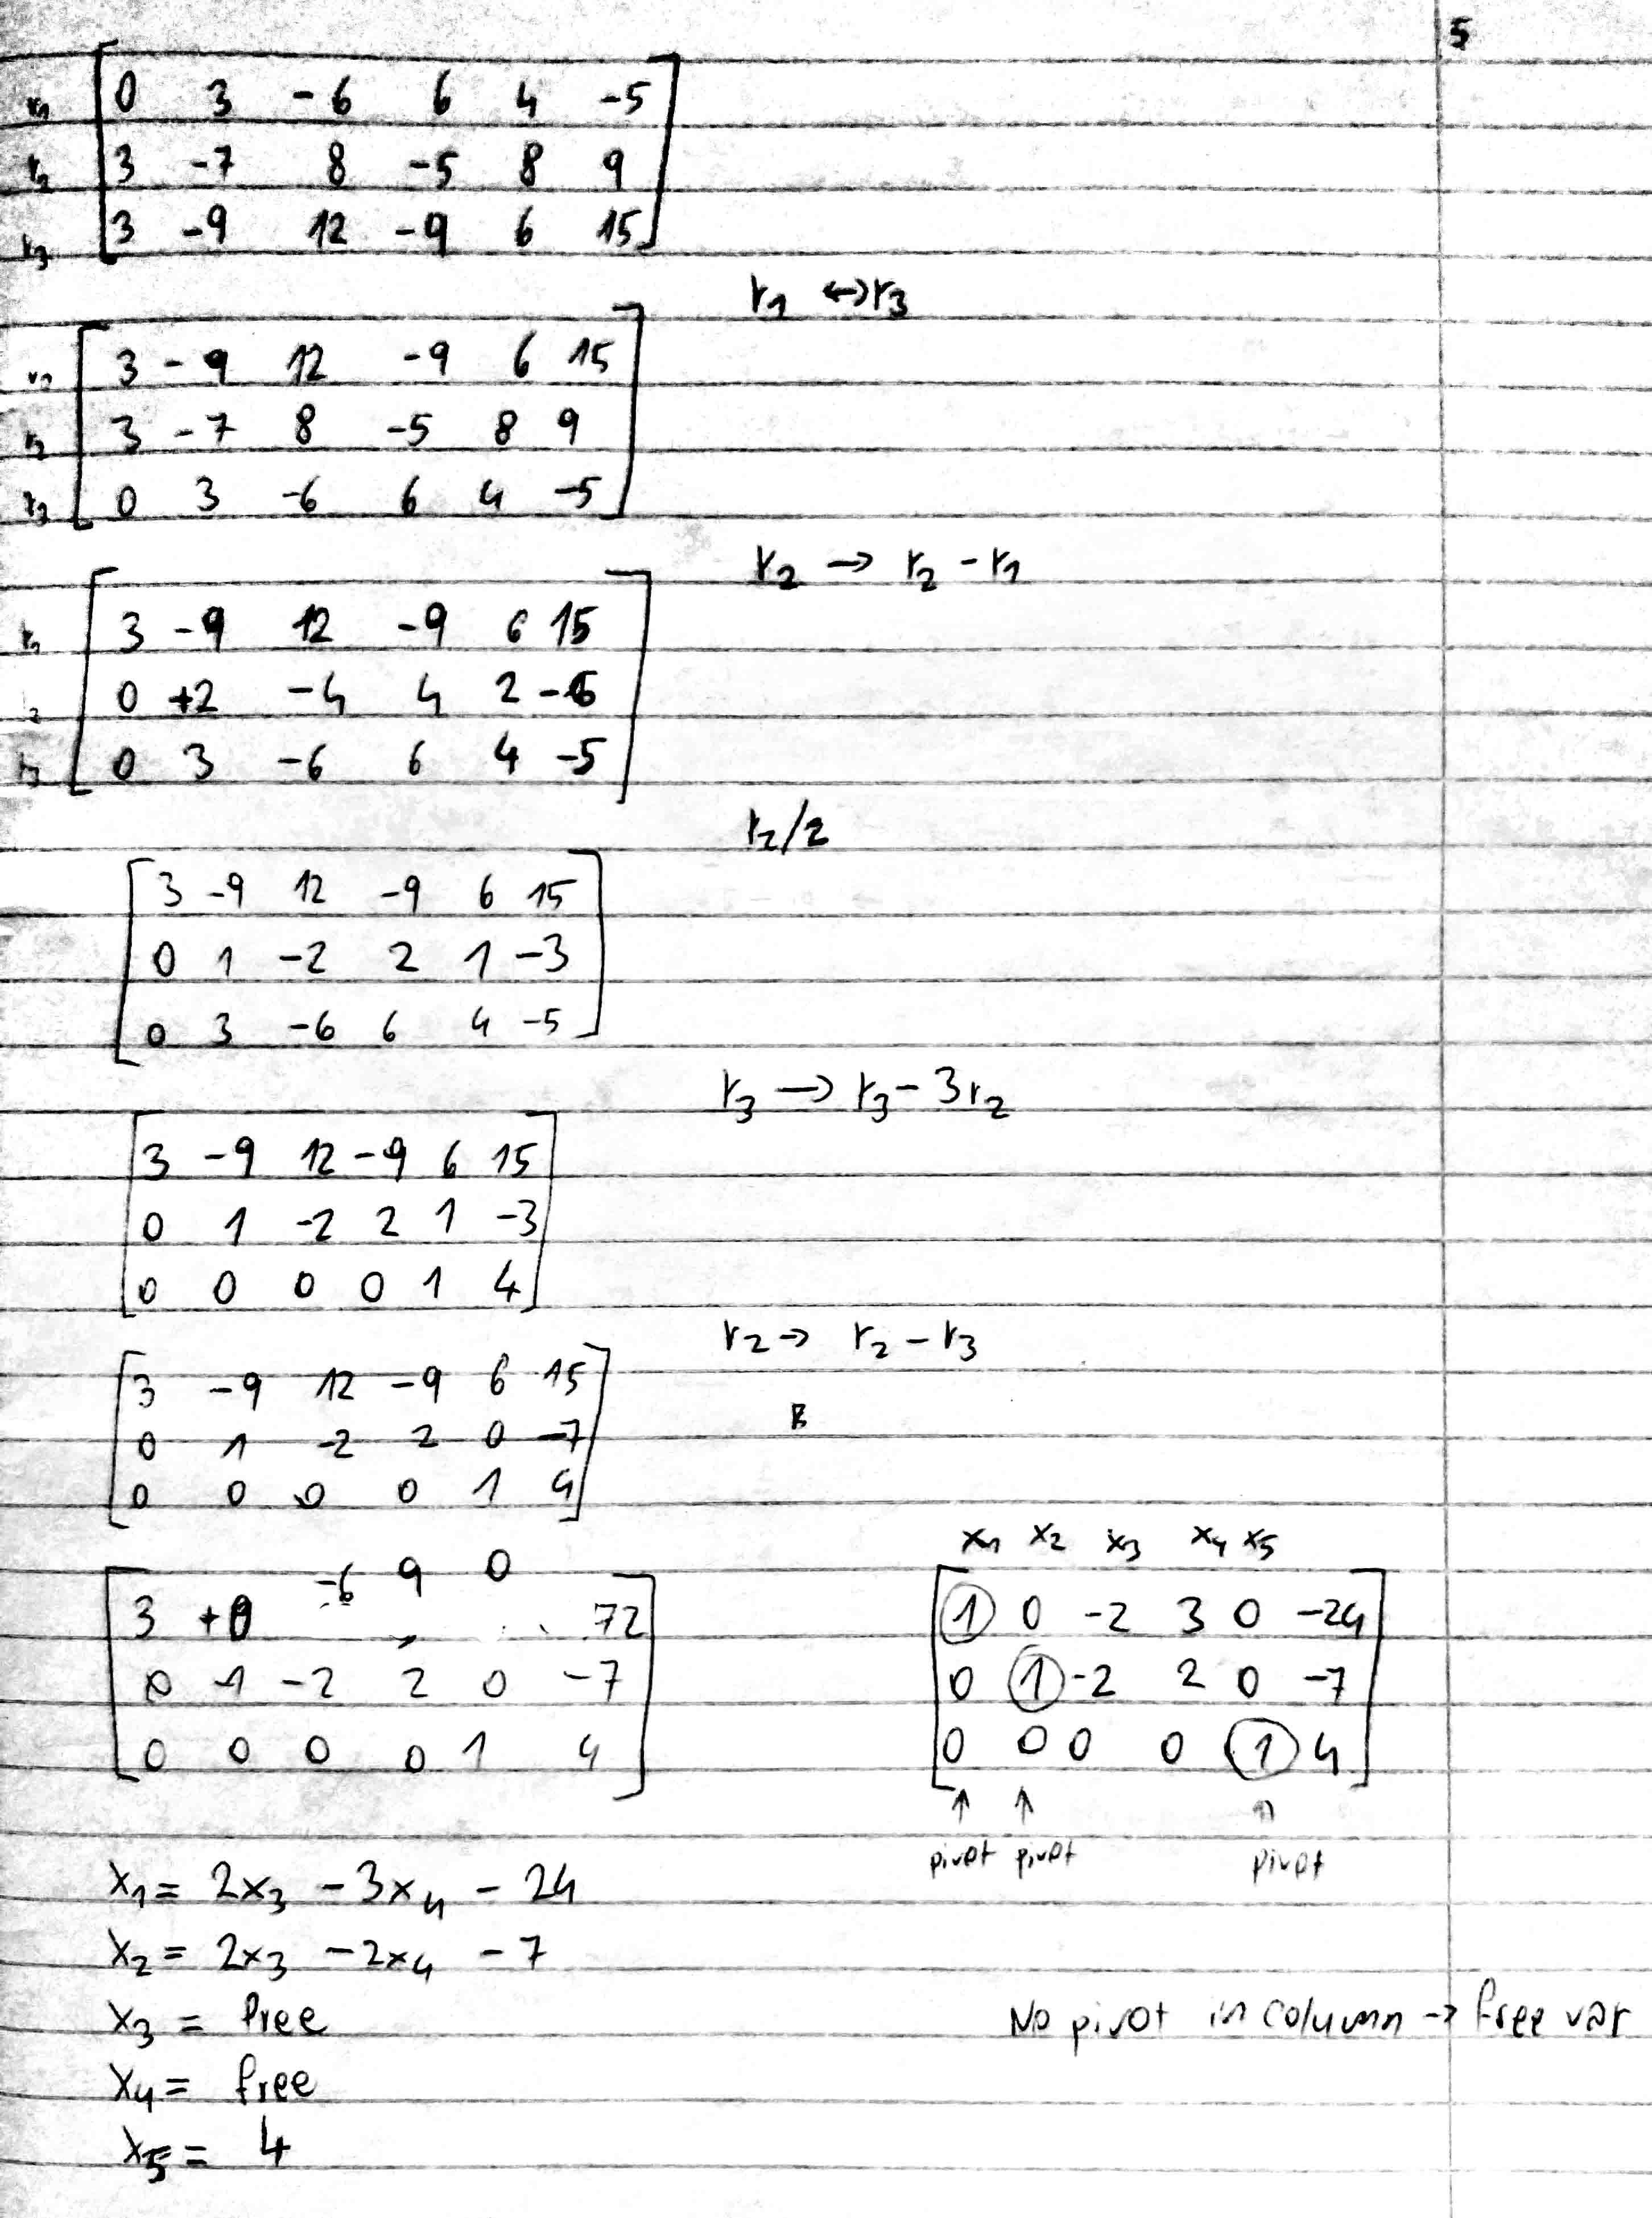 5
r1 0 3 -6 6 4 -5
r2 3 -7 8 -5 8 9
r3 3 -9 12 -9 6 15
r1 ↔ r3
r1 3 -9 12 -9 6 15
r2 3 -7 8 -5 8 9
r3 0 3 -6 6 4 -5
r2 → r2 - r1
r1 3 -9 12 -9 6 15
2 0 +2 -4 4 2 -6
r3 0 3 -6 6 4 -5
r2/2
3 -9 12 -9 6 15
0 1 -2 2 1 -3
0 3 -6 6 4 -5
r3 → r3 - 3r2
3 -9 12 -9 6 15
0 1 -2 2 1 -3
0 0 0 0 1 4
r2 → r2 - r3
3 -9 12 -9 6 15
0 1 -2 2 0 -7
0 0 0 0 1 4
-6 9 0
3 +0 72
0 1 -2 2 0 -7
0 0 0 0 1 4
x1 x2 x3 x4 x5
1 0 -2 3 0 -24
0 1 -2 2 0 -7
0 0 0 0 1 4
↑ ↑ ↑
pivot pivot pivot
x1 = 2x3 - 3x4 - 24
x2 = 2x3 - 2x4 - 7
x3 = free
No pivot in column → free var
x4 = free
x5 = 4